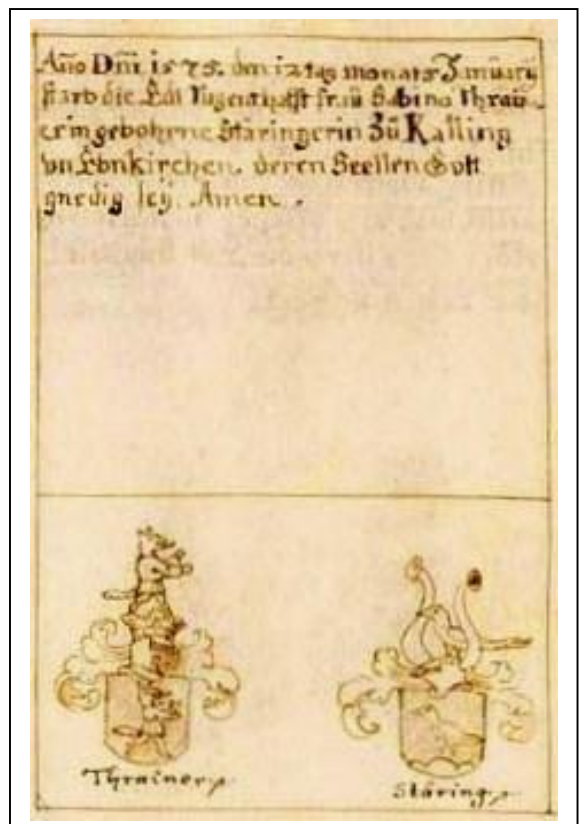 Año Dni 1575. den 12 tag monats Januarÿ
starb die Edl Tugenthafft fraü Sabina Thrau=
erin gebohrne Stäringerin Zü Kalling
vn Ebnkirchen. deren Seellen Gott
gnedig seÿ. Amen.
Thrainer
Stäring